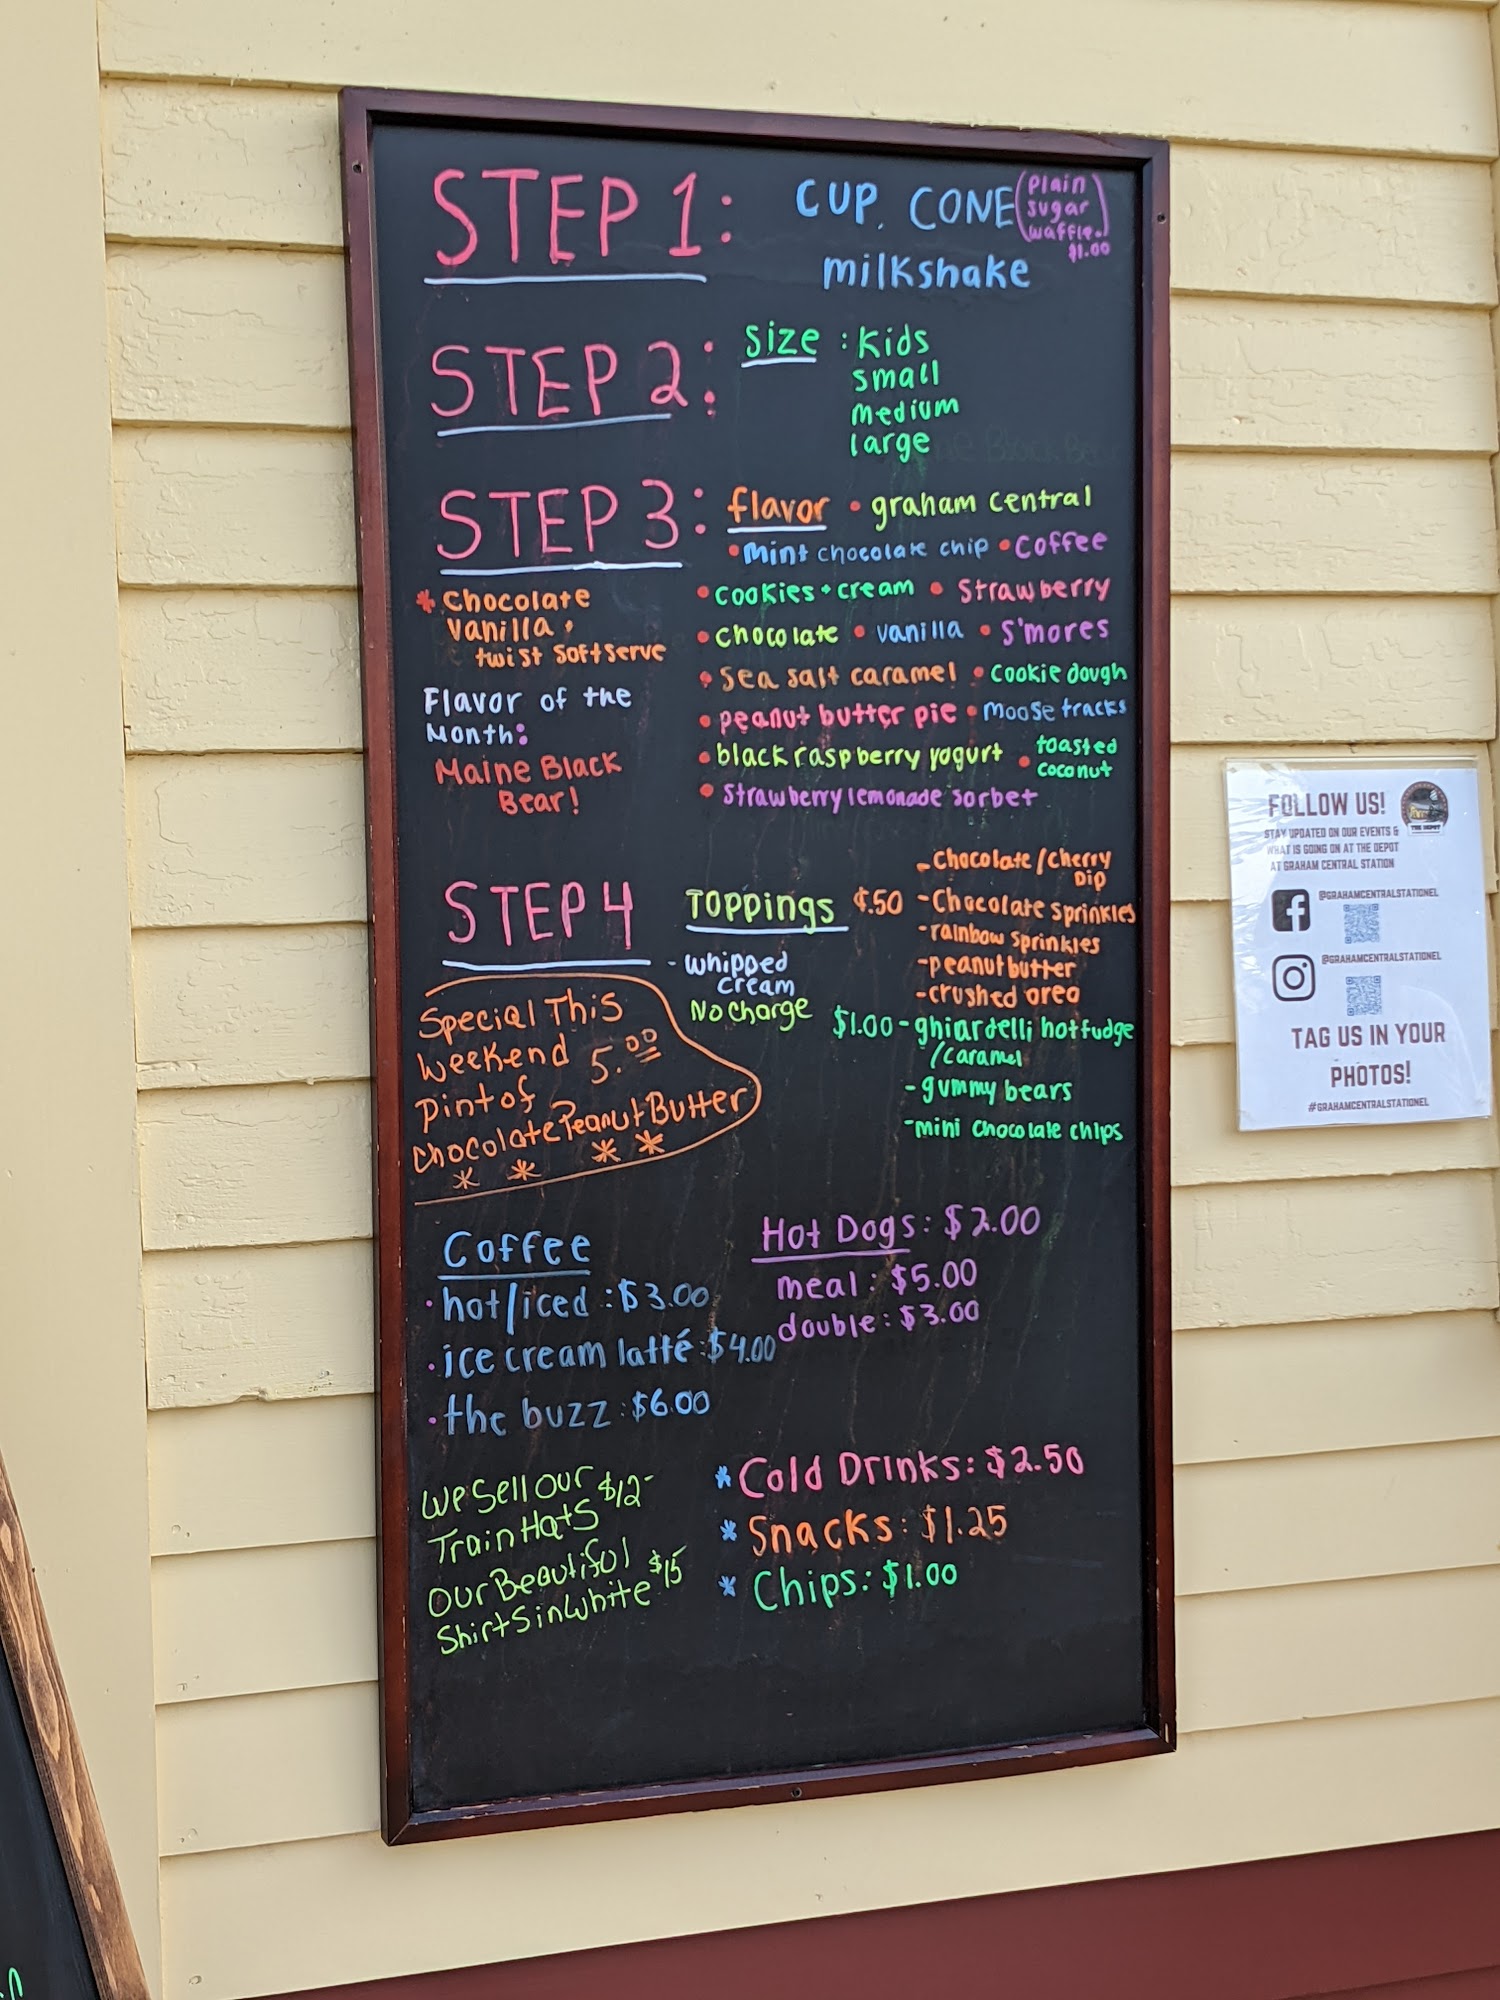 STEP 1:
CUP, CONE (Plain
sugar
waffle.)
$1.00
milkshake
STEP 2:
Size : Kids
small
medium
large
STEP 3:
flavor • graham central
• Mint chocolate chip • Coffee
• Cookies + cream • Strawberry
• Chocolate • vanilla • S'mores
• Sea salt caramel • Cookie dough
• peanut butter pie • Moose tracks
• black raspberry yogurt • toasted
coconut
• Strawberry lemonade sorbet
* Chocolate
Vanilla +
twist Softserve
Flavor of the
Month:
Maine Black
Bear!
STEP 4
Toppings
- whipped
cream
No Charge
¢.50
- Chocolate/Cherry
Dip
- Chocolate sprinkles
- rainbow sprinkles
- peanut butter
- crushed oreo
$1.00 - ghiardelli hot fudge
/caramel
- gummy bears
- mini chocolate chips
Special This
Weekend 5.00
Pint of
Chocolate Peanut Butter
* * * *
Coffee
• hot/iced : $3.00
• ice cream latté : $4.00
• the buzz : $6.00
Hot Dogs: $2.00
meal : $5.00
double : $3.00
We Sell Our $12-
Train Hats
Our Beautiful $15
Shirts in White
* Cold Drinks: $2.50
* Snacks: $1.25
* Chips: $1.00
FOLLOW US!
STAY UPDATED ON OUR EVENTS &
WHAT IS GOING ON AT THE DEPOT
AT GRAHAM CENTRAL STATION
THE DEPOT
@GRAHAMCENTRALSTATIONEL
@GRAHAMCENTRALSTATIONEL
TAG US IN YOUR
PHOTOS!
#GRAHAMCENTRALSTATIONEL